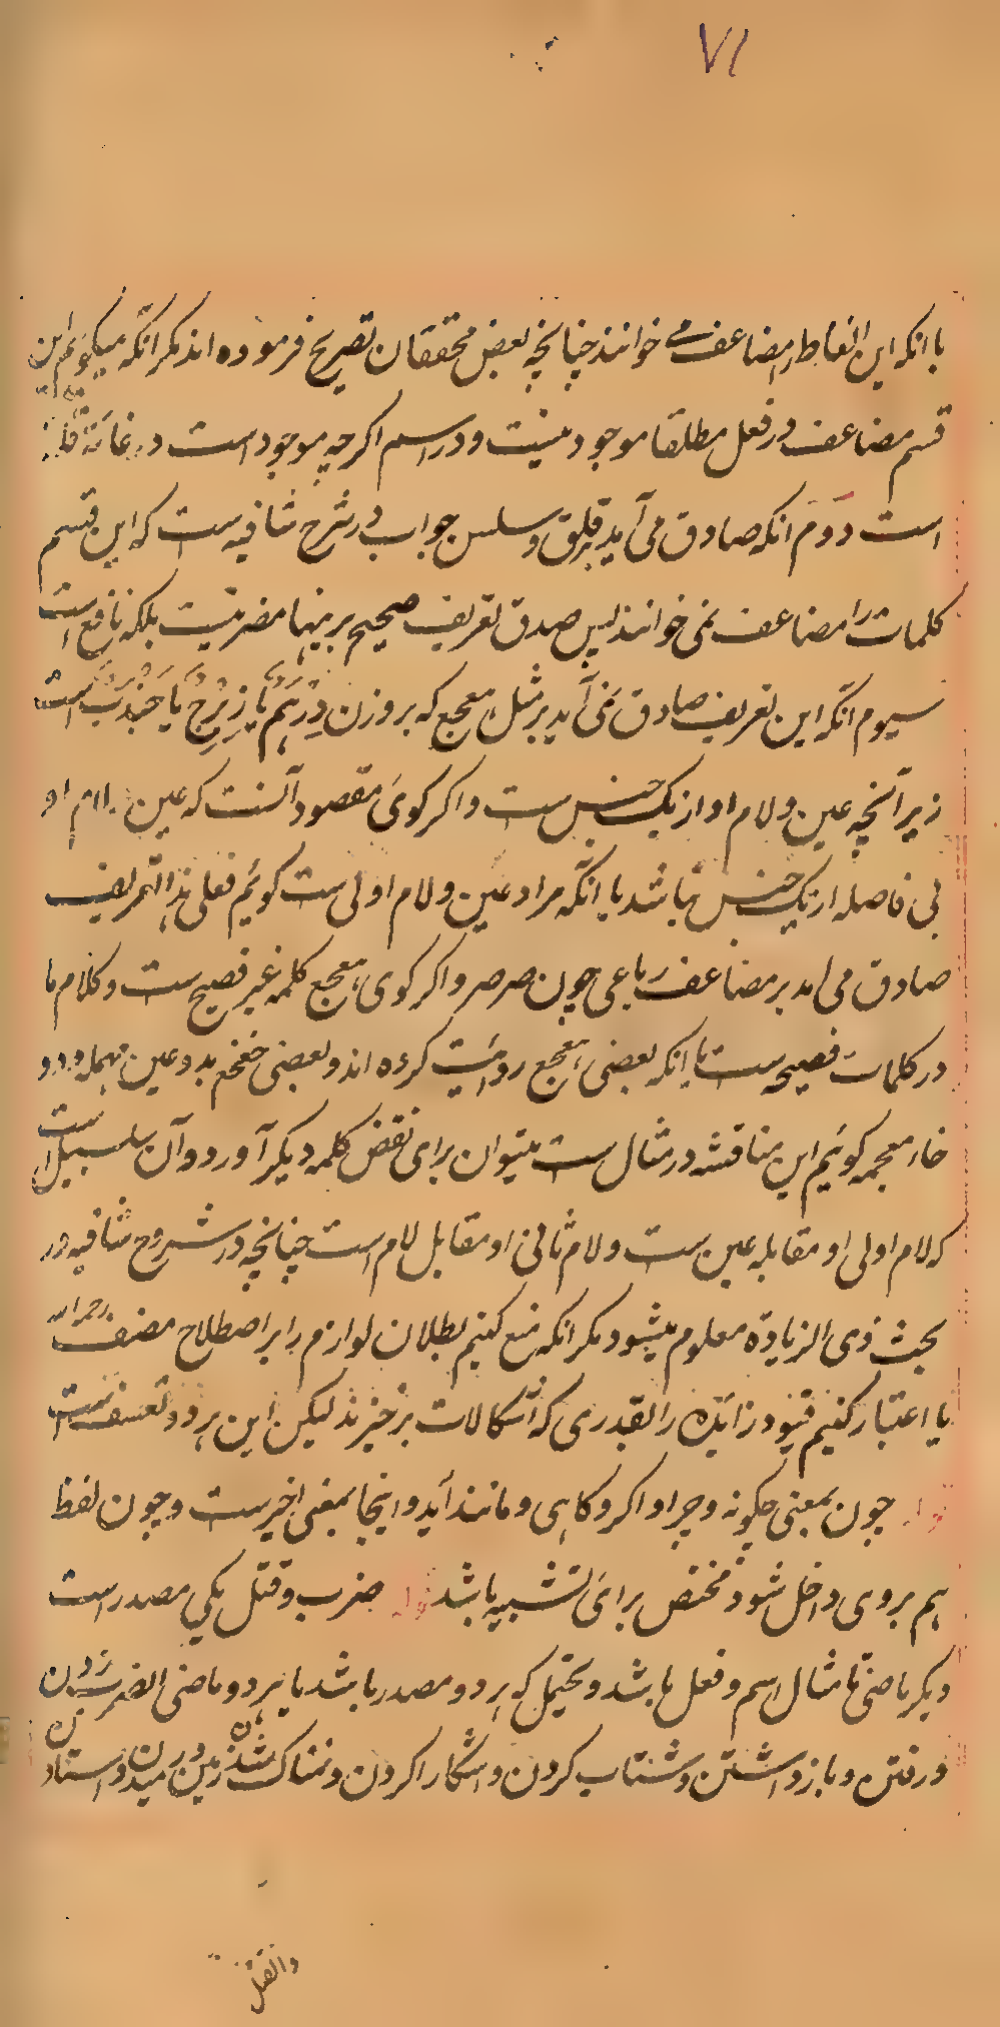 ۷۱
با انکه این الفاظ را مضاعف می خوانند چنانچه بعض محققان تصریح فرموده اند مکر انکه میکوئیم این
قسم مضاعف در فعل مطلقا موجود نیست و در اسم اکرچه موجود است در غائة قلة
است دوم انکه صادق می آید بر قلق و سلس جواب در شرح شافیه ست که این قسم
کلمات را مضاعف نمی خوانند پس صدق تعریف صحیح بر ینها مضر نیست بلکه نافع است
سیوم انکه این تعریف صادق نمی آید بر مثل هعجع که بر وزن دِرْهَم یا زِبْرِج یا جُنْدَب است
زیرانچه عین و لام او از یک جنس ست و اکر کوی مقصود آنست که عین و لام او
بی فاصله از یک جنس نباشد یا انکه مراد عین و لام اولی ست کوئیم فعلی هذا التعریف
صادق می اید بر مضاعف رباعی چون صرصر و اکر کوی هعجع کلمه غیر فصیح ست و کلام ما
در کلمات فصیحه ست با انکه بعضی هعجع روایت کرده اند و بعضی خعخع بدو عین مهمله و دو
خاء معجمه کوئیم این مناقشه در مثال ست میتوان برای نقض کلمه دیکر آورد و آن سلسبیل است
که لام اولی او مقابله عین ست و لام ثانی او مقابل لام است چنانچه در شروح شافیه در
بحث ذی الزیادة معلوم میشود مکر انکه منع کنیم بطلان لوازم را بر اصطلاح مصنف رحمه الله
یا اعتبار کنیم قیود زائده را بقدری که اشکالات برخیزند لیکن این هر دو تعسف ست
قوله چون بمعنی چکونه و چرا و اکر و کاهی و مانند آید و اینجا بمعنی اخیر ست و چون لفظ
هم بر وی داخل شود مختص برای تشبیه باشد قوله ضرب و قتل یکی مصدر است
دیکر ماضی تا مثال اسم و فعل باشد و یحتمل که هر دو مصدر باشد یا هر دو ماضی الضرب زدن
و رفتن و باز داشتن و شتاب کردن و اشکارا کردن و نمناک شدن زمین و
والقتل